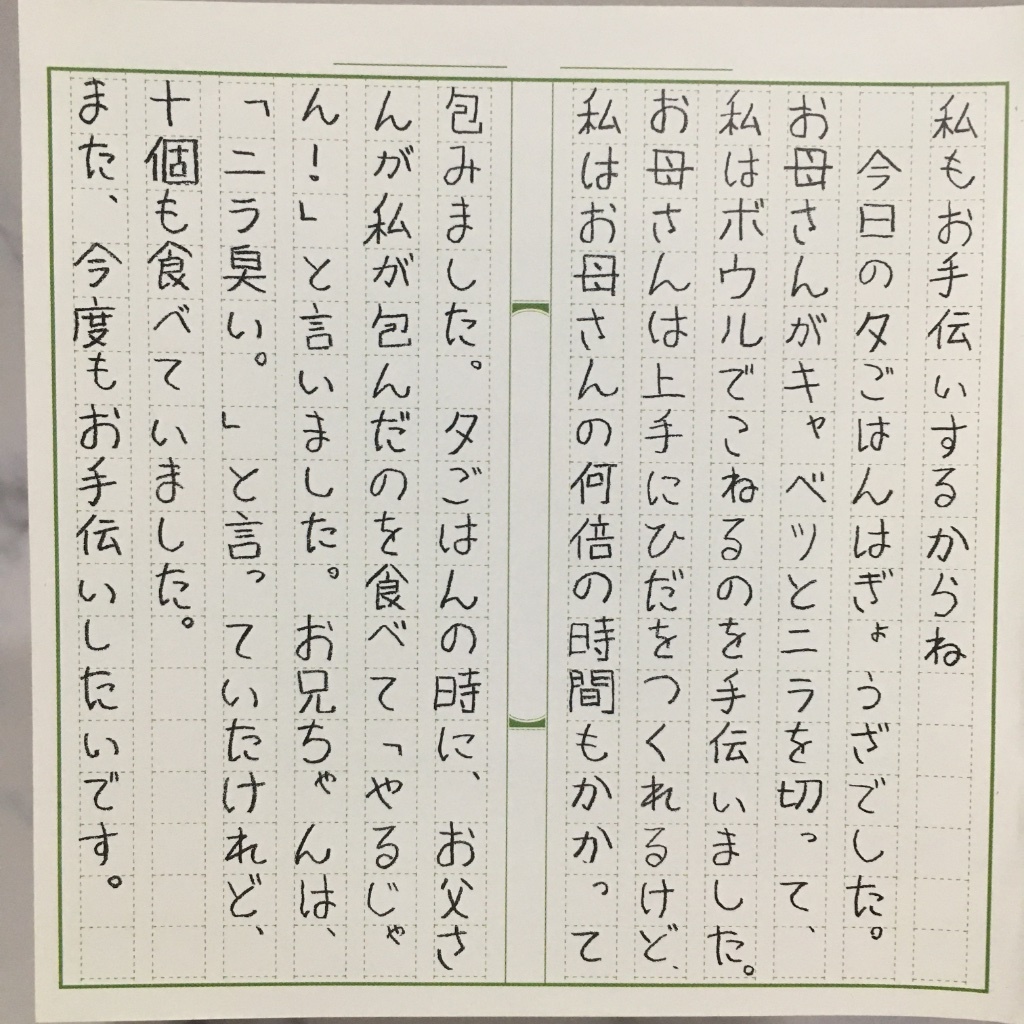 私もお手伝いするからね
今日の夕ごはんはぎょうざでした。
お母さんがキャベツとニラを切って、
私はボウルでこねるのを手伝いました。
お母さんは上手にひだをつくれるけど、
私はお母さんの何倍の時間もかかって
包みました。夕ごはんの時に、お父さ
んが私が包んだのを食べて「やるじゃ
ん!」と言いました。お兄ちゃんは、
「ニラ臭い。」と言っていたけれど、
十個も食べていました。
また、今度もお手伝いしたいです。